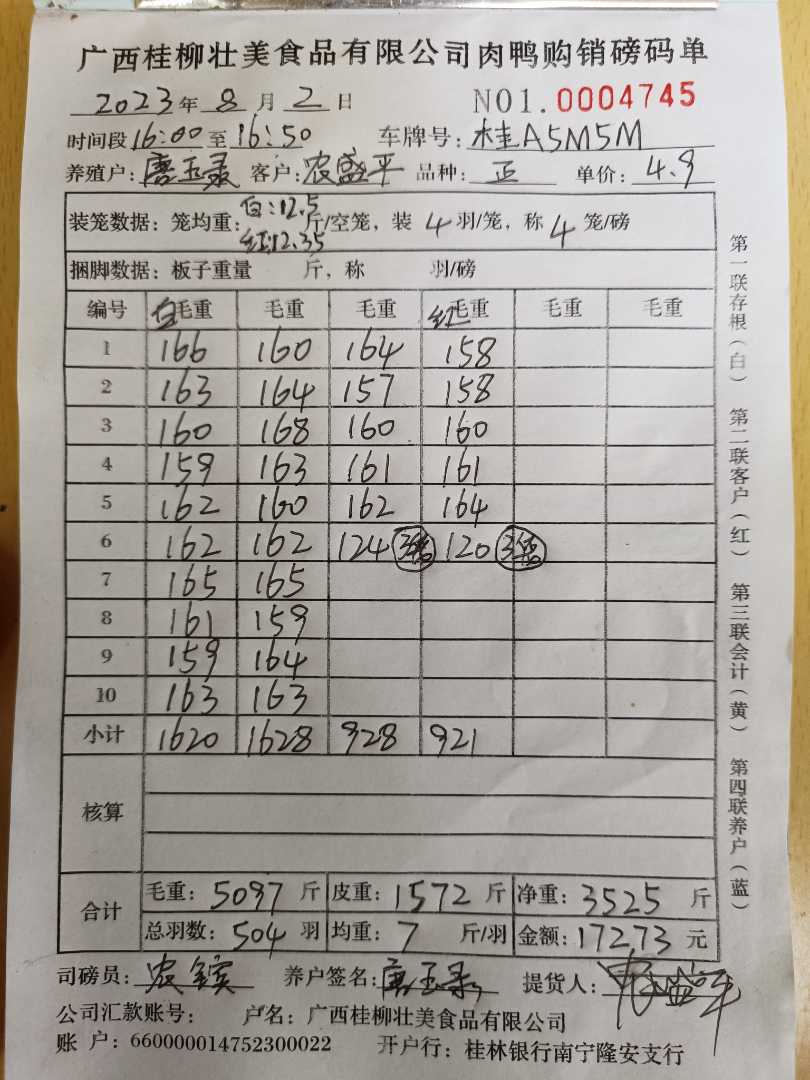 广西桂柳壮美食品有限公司肉鸭购销磅码单
2023年 8月 2日 NO1.0004745
时间段16:00至16:50 车牌号:桂A5M5M
养殖户:唐玉录 客户:农盛平 品种:正 单价:4.9
装笼数据:笼均重:白:12.5 红12.35 斤/空笼,装 4 羽/笼,称 4 笼/磅
捆脚数据:板子重量 斤,称 羽/磅
编号 白毛重 毛重 毛重 红毛重 毛重 毛重
1 166 160 164 158
2 163 164 157 158
3 160 168 160 160
4 159 163 161 161
5 162 160 162 164
6 162 162 124 3笼 120 3笼
7 165 165
8 161 159
9 159 164
10 163 163
小计 1620 1628 928 921
核算
合计 毛重:5097斤 皮重:1572斤 净重:3525斤
总羽数:504羽 均重:7 斤/羽 金额:17273元
司磅员:农 养户签名:唐玉录 提货人:农盛平
公司汇款账号: 户名:广西桂柳壮美食品有限公司
账 户:660000014752300022 开户行:桂林银行南宁隆安支行
第一联存根(白) 第二联客户(红) 第三联会计(黄) 第四联养户(蓝)